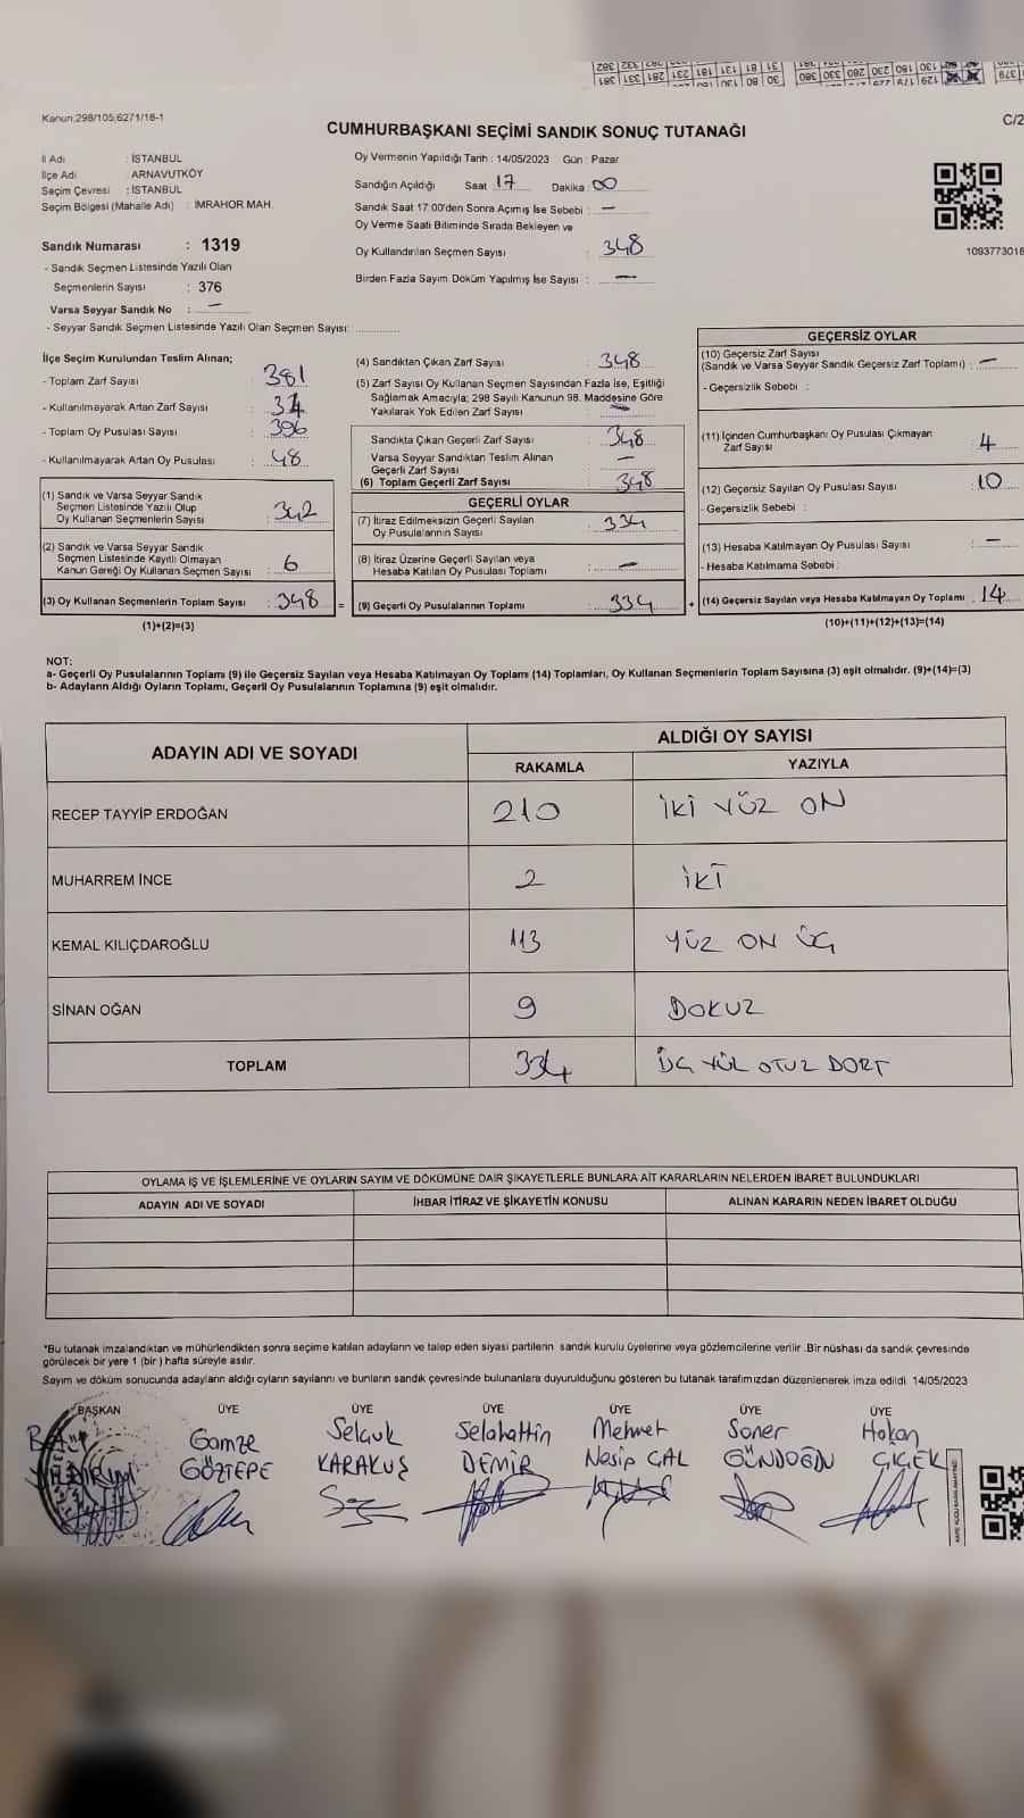 Kanun 298/105,6271/18-1
C/2
CUMHURBAŞKANI SEÇİMİ SANDIK SONUÇ TUTANAĞI
İl Adı : İSTANBUL
İlçe Adı : ARNAVUTKÖY
Seçim Çevresi : İSTANBUL
Seçim Bölgesi (Mahalle Adı) : İMRAHOR MAH.
Oy Vermenin Yapıldığı Tarih : 14/05/2023 Gün : Pazar
Sandığın Açıldığı Saat 17 Dakika 00
Sandık Saat 17:00'den Sonra Açımış İse Sebebi : —
Oy Verme Saati Bitiminde Sırada Bekleyen ve
Oy Kullandırılan Seçmen Sayısı : 348
Birden Fazla Sayım Döküm Yapılmış İse Sayısı : —
1093773016
Sandık Numarası : 1319
- Sandık Seçmen Listesinde Yazılı Olan
Seçmenlerin Sayısı : 376
Varsa Seyyar Sandık No : —
- Seyyar Sandık Seçmen Listesinde Yazılı Olan Seçmen Sayısı:
İlçe Seçim Kurulundan Teslim Alınan;
- Toplam Zarf Sayısı : 381
- Kullanılmayarak Artan Zarf Sayısı : 34
- Toplam Oy Pusulası Sayısı : 396
- Kullanılmayarak Artan Oy Pusulası : 48
(1) Sandık ve Varsa Seyyar Sandık
Seçmen Listesinde Yazılı Olup
Oy Kullanan Seçmenlerin Sayısı : 342
(2) Sandık ve Varsa Seyyar Sandık
Seçmen Listesinde Kayıtlı Olmayan
Kanun Gereği Oy Kullanan Seçmen Sayısı : 6
(3) Oy Kullanan Seçmenlerin Toplam Sayısı : 348 =
(1)+(2)=(3)
(4) Sandıktan Çıkan Zarf Sayısı : 348
(5) Zarf Sayısı Oy Kullanan Seçmen Sayısından Fazla İse, Eşitliği
Sağlamak Amacıyla; 298 Sayılı Kanunun 98. Maddesine Göre
Yakılarak Yok Edilen Zarf Sayısı : —
Sandıkta Çıkan Geçerli Zarf Sayısı : 348
Varsa Seyyar Sandıktan Teslim Alınan
Geçerli Zarf Sayısı —
(6) Toplam Geçerli Zarf Sayısı : 348
GEÇERLİ OYLAR
(7) İtiraz Edilmeksizin Geçerli Sayılan
Oy Pusulalarının Sayısı : 334
(8) İtiraz Üzerine Geçerli Sayılan veya
Hesaba Katılan Oy Pusulası Toplamı : —
(9) Geçerli Oy Pusulalarının Toplamı : 334 +
GEÇERSİZ OYLAR
(10) Geçersiz Zarf Sayısı
(Sandık ve Varsa Seyyar Sandık Geçersiz Zarf Toplamı) : —
- Geçersizlik Sebebi :
(11) İçinden Cumhurbaşkanı Oy Pusulası Çıkmayan
Zarf Sayısı : 4
(12) Geçersiz Sayılan Oy Pusulası Sayısı : 10
- Geçersizlik Sebebi :
(13) Hesaba Katılmayan Oy Pusulası Sayısı : —
- Hesaba Katılmama Sebebi :
(14) Geçersiz Sayılan veya Hesaba Katılmayan Oy Toplamı : 14
(10)+(11)+(12)+(13)=(14)
NOT:
a- Geçerli Oy Pusulalarının Toplamı (9) ile Geçersiz Sayılan veya Hesaba Katılmayan Oy Toplamı (14) Toplamları, Oy Kullanan Seçmenlerin Toplam Sayısına (3) eşit olmalıdır. (9)+(14)=(3)
b- Adayların Aldığı Oyların Toplamı, Geçerli Oy Pusulalarının Toplamına (9) eşit olmalıdır.
ADAYIN ADI VE SOYADI
ALDIĞI OY SAYISI
RAKAMLA YAZIYLA
RECEP TAYYİP ERDOĞAN 210 İKİ YÜZ ON
MUHARREM İNCE 2 İKİ
KEMAL KILIÇDAROĞLU 113 YÜZ ON ÜÇ
SİNAN OĞAN 9 DOKUZ
TOPLAM 334 ÜÇ YÜZ OTUZ DÖRT
OYLAMA İŞ VE İŞLEMLERİNE VE OYLARIN SAYIM VE DÖKÜMÜNE DAİR ŞİKAYETLERLE BUNLARA AİT KARARLARIN NELERDEN İBARET BULUNDUKLARI
ADAYIN ADI VE SOYADI İHBAR İTİRAZ VE ŞİKAYETİN KONUSU ALINAN KARARIN NEDEN İBARET OLDUĞU
*Bu tutanak imzalandıktan ve mühürlendikten sonra seçime katılan adayların ve talep eden siyasi partilerin sandık kurulu üyelerine veya gözlemcilerine verilir .Bir nüshası da sandık çevresinde
görülecek bir yere 1 (bir ) hafta süreyle asılır.
Sayım ve döküm sonucunda adayların aldığı oyların sayılarını ve bunların sandık çevresinde bulunanlara duyurulduğunu gösteren bu tutanak tarafımızdan düzenlenerek imza edildi. 14/05/2023
BAŞKAN ÜYE ÜYE ÜYE ÜYE ÜYE ÜYE
Gamze Selçuk Selahattin Mehmet Soner Hakan
YILDIRIM GÖZTEPE KARAKUŞ DEMİR Nesip ÇAL GÜNDOĞDU ÇİÇEK